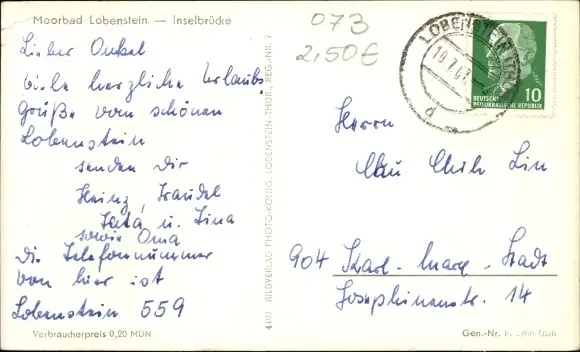 Moorbad Lobenstein — Inselbrücke
073
2,50€
Lieber Onkel
viele herzliche Urlaubs
grüße vom schönen
Lobenstein
senden Dir
Heinz, Traudel
u. Tina
sowie Oma
die Telefonnummer
von hier ist
Lobenstein 559
Verbraucherpreis 0,20 MDN
4492 BILDVERLAG PHOTO-KÖNIG, LOBENSTEIN-THÜR., REG.-NR. 7
LOBENSTEIN
d
DEUTSCHE
DEMOKRATISCHE REPUBLIK
10
Herrn
Lin
904 Karl-Marx-Stadt
Josephinenstr. 14
Gen.-Nr.